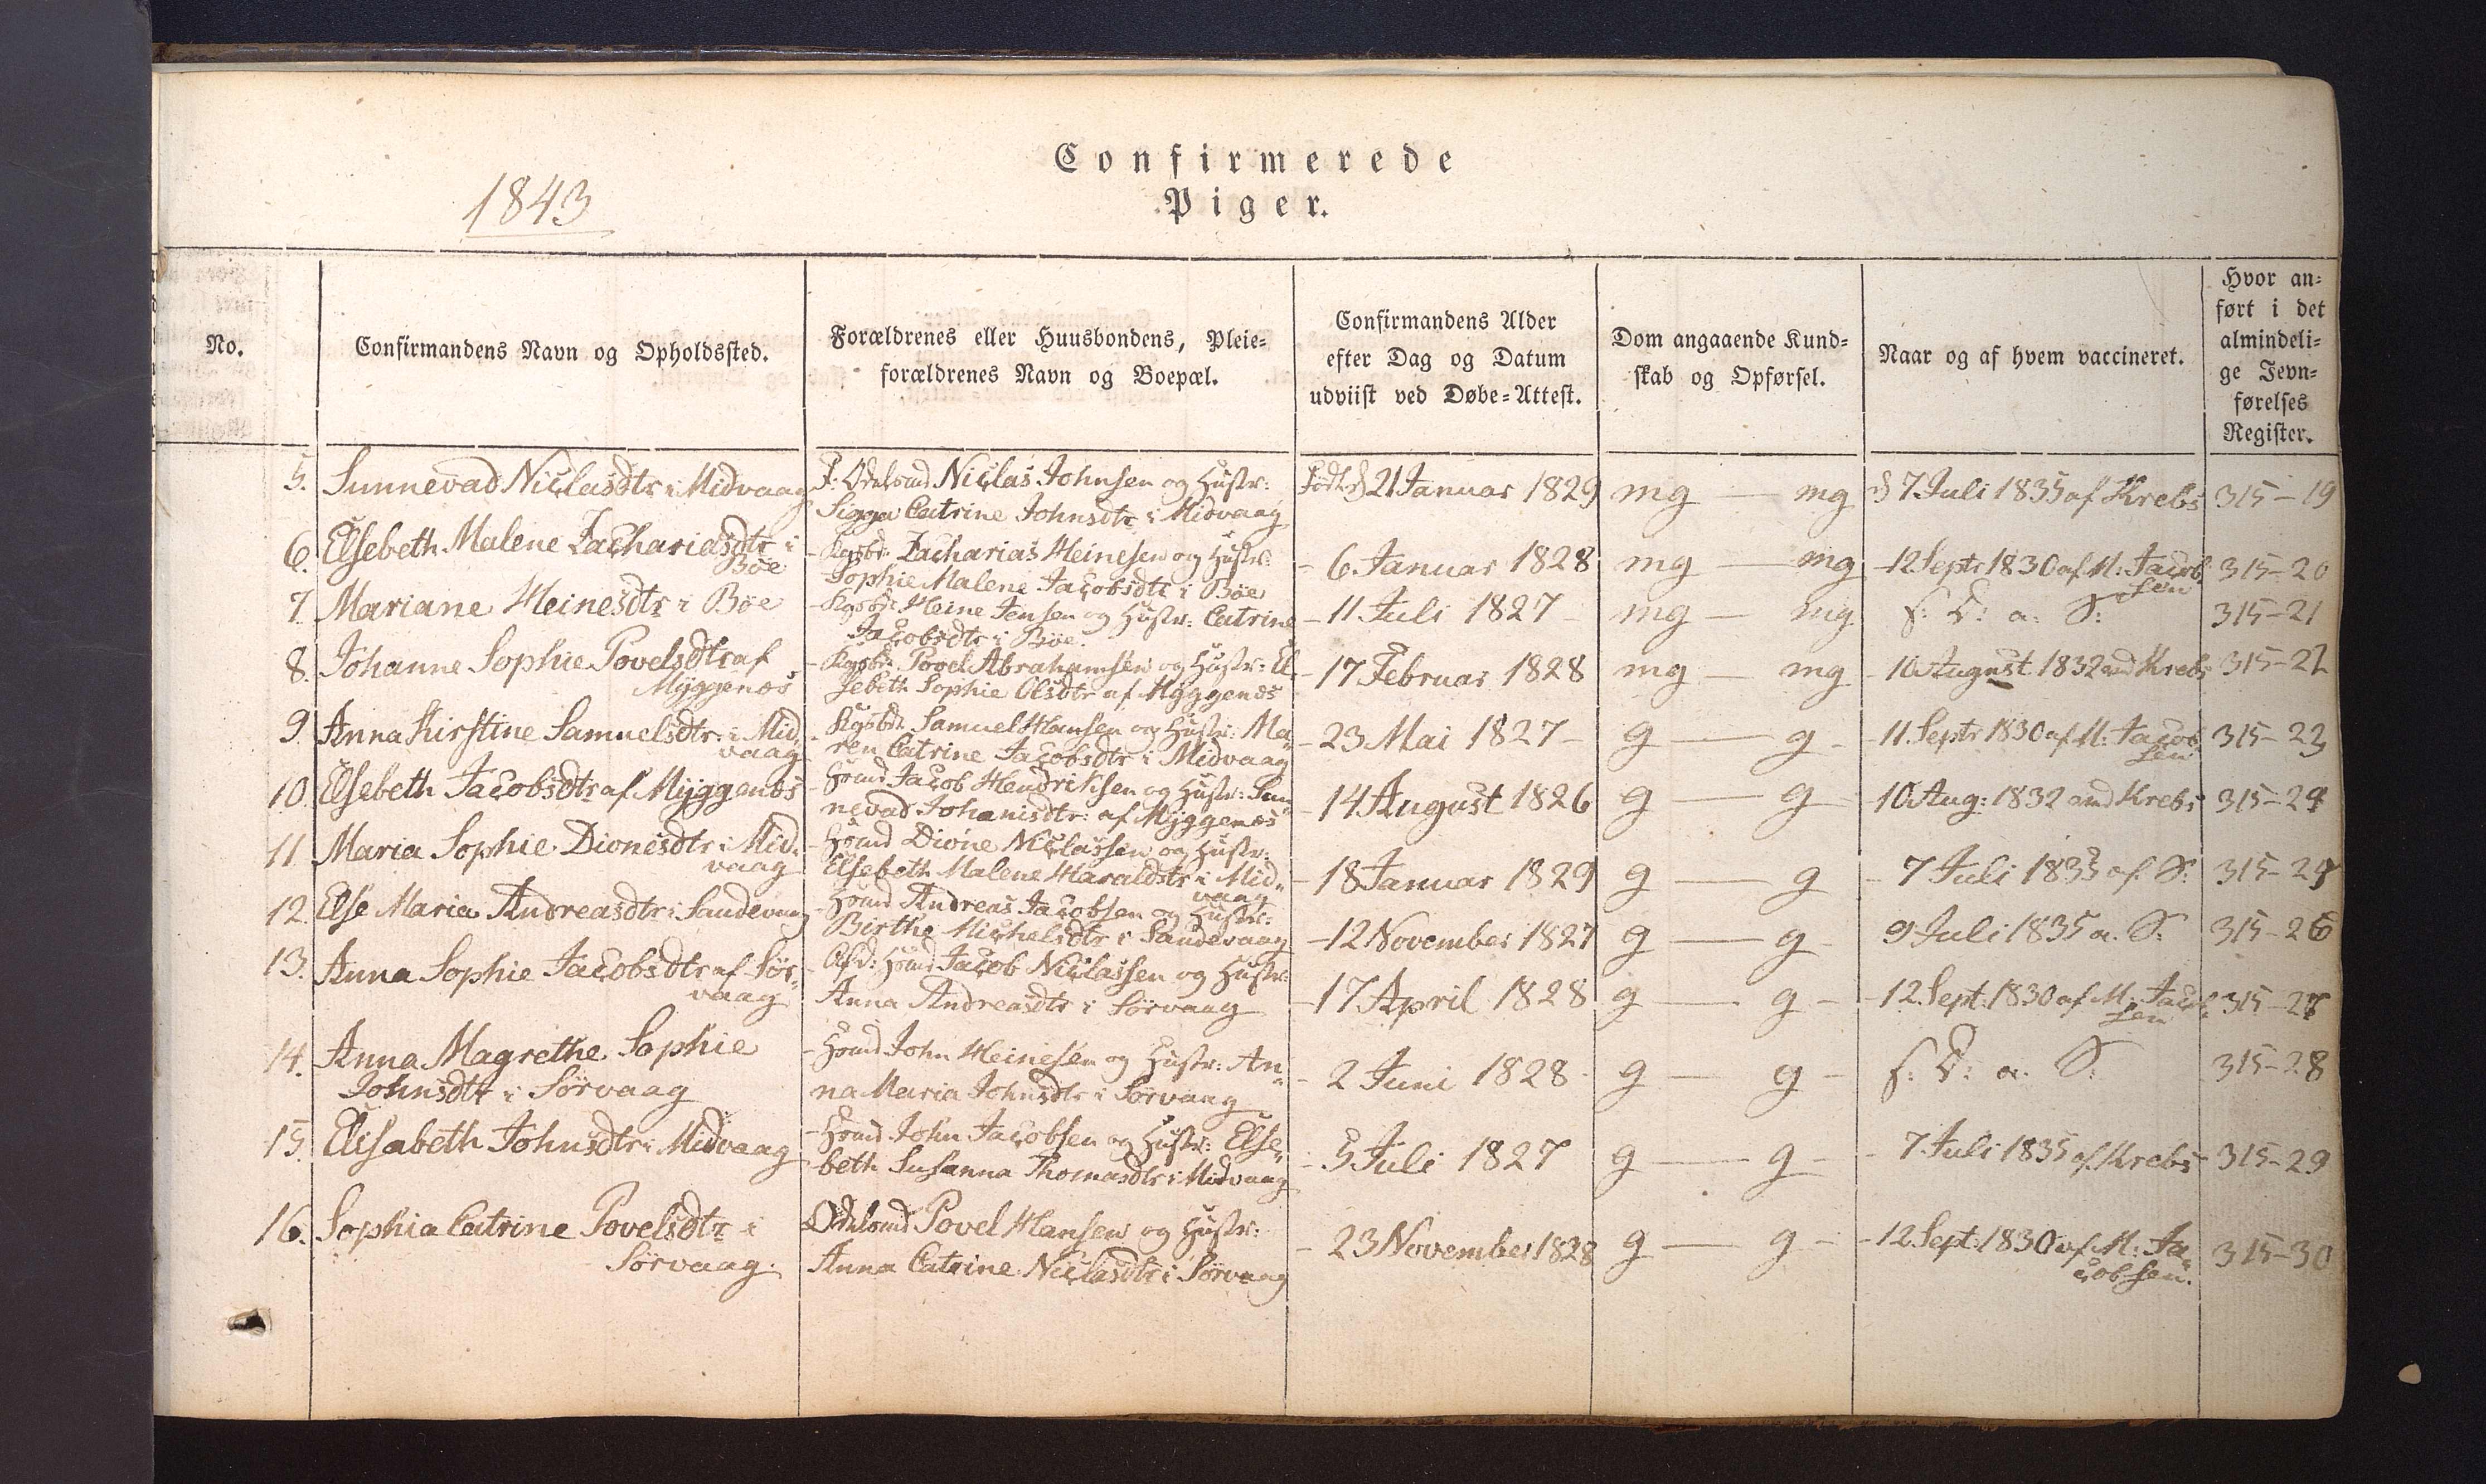 1843
Confirmerede
Piger.
No.
Confirmandens Navn og Opholdssted.
Forældrenes eller Huusbondens, Pleie-
forældrenes Navn og Boepæl.
Confirmandens Alder
efter Dag og Datum
udviist ved Døbe-Attest.
Dom angaaende Kund-
skab og Opførsel.
Naar og af hvem vaccineret.
Hvor an-
ført i det
almindeli-
ge Jevn-
førelses
Register.
5. Sunnevad Niclasdtr i Midvaag
F: Odelsmd Niclas Johnsen og Hustr:
Sigga Catrine Johnsdtr i Midvaag
Født d 21 Januar 1829
mg — mg
d 7 Juli 1835 af Krebs
315-19
6. Elsebeth Malene Zachariasdtr i
Böe
- Kgsbd: Zacharias Heinesen og Hustr:
Sophie Malene Jacobsdtr i Böe
- 6. Januar 1828
mg — mg
- 12 Septr 1830 af M: Jacob
sen
315-20
7. Mariane Heinesdtr i Böe
- Kgsbd: Heine Jensen og Hustr: Catrine
Jacobsdtr i Böe.
- 11 Juli 1827 -
mg — mg
f: D: a: S:
315-21
8. Johanne Sophie Povelsdtr af
Myggenæs
- Kgsbd: Povel Abrahamsen og Hustr: El-
sebeth Sophie Olsdtr af Myggenæs
- 17 Februar 1828
mg — mg
- 10 August 1832 ved Krebs
315-22
9. Anna Kirstine Samuelsdtr: i Mid-
vaag
- Kgsbd: Samuel Hansen og Hustr: Ma-
ren Catrine Jacobsdtr i Midvaag
- 23 Mai 1827 -
g — g -
- 11. Septr 1830 af M: Jacob
sen
315-23
10. Elsebeth Jacobsdtr af Myggenæs
- Hsmd Jacob Hendriksen og Hustr: Sun-
nevad Johanisdtr: af Myggenæs
- 14 August 1826
g — g
- 10 Aug: 1832 ved Krebs
315-24
11. Maria Sophie Dionesdtr i Mid-
vaag
- Hsmd Dione Niclassen og Hustr:
Elsebeth Malene Haraldsdtr i Mid-
vaag
- 18 Januar 1829
g — g
- 7 Juli 1835 af S:
12. Else Maria Andreasdtr i Sandevaag
- Hsmd Andreas Jacobsen og Hustr:
Birthe Michelsdtr i Sandevaag
- 12 November 1827
g — g -
9 Juli 1835 a. S:
315-26
13. Anna Sophie Jacobsdtr af Sör-
vaag
- Afd: Hsmd Jacob Niclassen og Hustr:
Anna Andreasdtr i Sörvaag
- 17 April 1828
g — g -
- 12. Sept: 1830 af M: Jacob-
sen
315-27
14. Anna Magrethe Sophie
Johnsdtr i Sörvaag
- Hsmd John Heinesen og Hustr: An-
na Maria Johnsdtr i Sörvaag
- 2 Juni 1828 -
g — g -
f: D: a. S:
315-28
15. Elisabeth Johnsdtr i Midvaag
- Hsmd John Jacobsen og Hustr: Else-
beth Susanna Thomasdtr i Midvaag
- 5 Juli 1827
g — g -
- 7 Juli 1835 af Krebs
315-29
16. Sophia Catrine Povelsdtr i
Sörvaag.
Odelsmd Povel Hansen og Hustr:
Anna Catrine Niclasdtr i Sörvaag
- 23 November 1828
g — g -
- 12. Sept: 1830 af M: Ja-
cobsen.
315-30